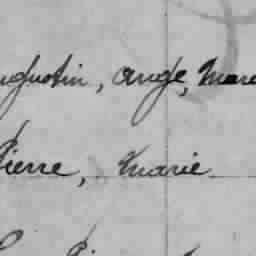 ugustin, ange, Mar
Pierre, Marie